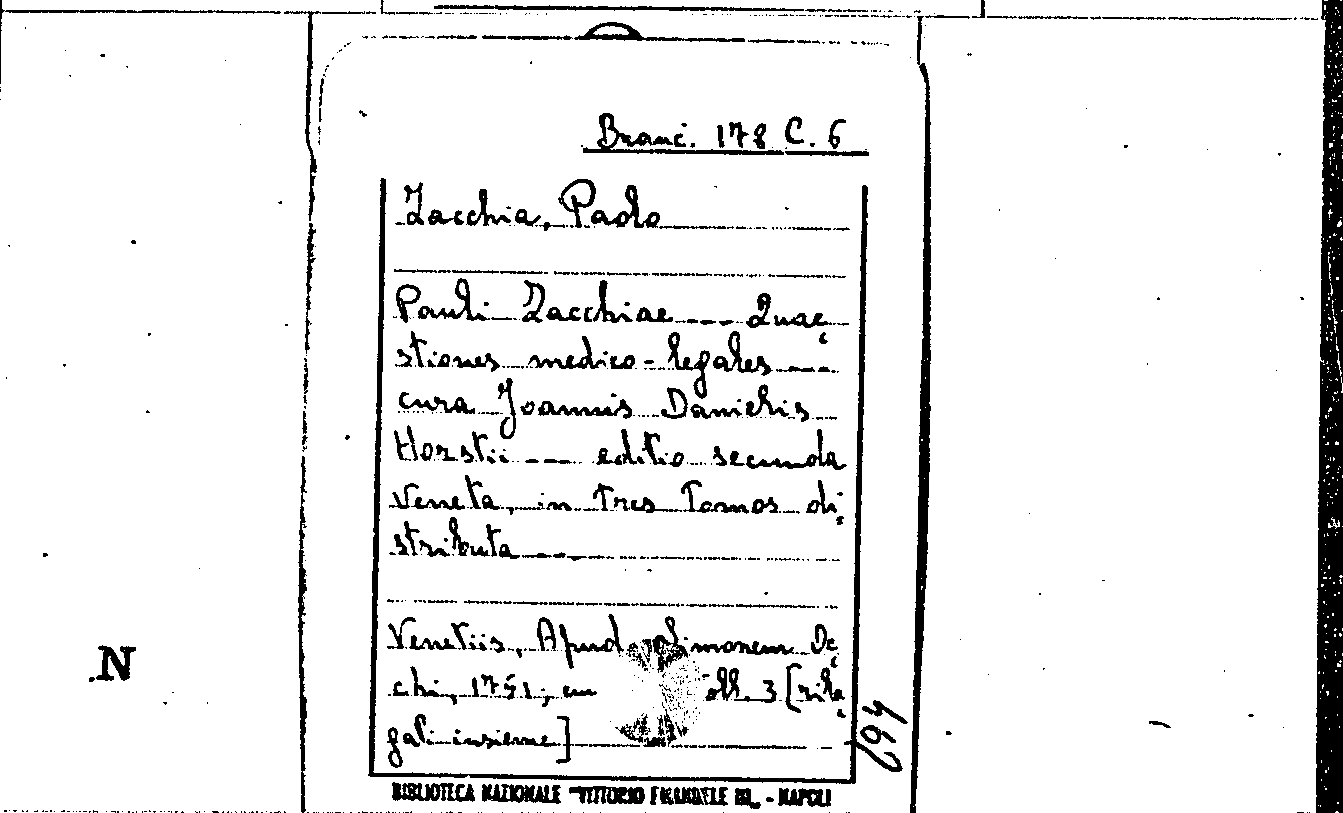 Branc. 178 C. 6
Zacchia, Paolo
Pauli Zacchiae --- Quae-
stiones medico-legales ---
cura Joannis Danielis
Horstii --- editio secunda
Veneta, in tres Tomos di-
stributa ---
Venetiis, Apud Simonem Oc-
chi, 1751, in voll. 3 [rile-
gati insieme]
BIBLIOTECA NAZIONALE "VITTORIO EMANUELE III" - NAPOLI
N